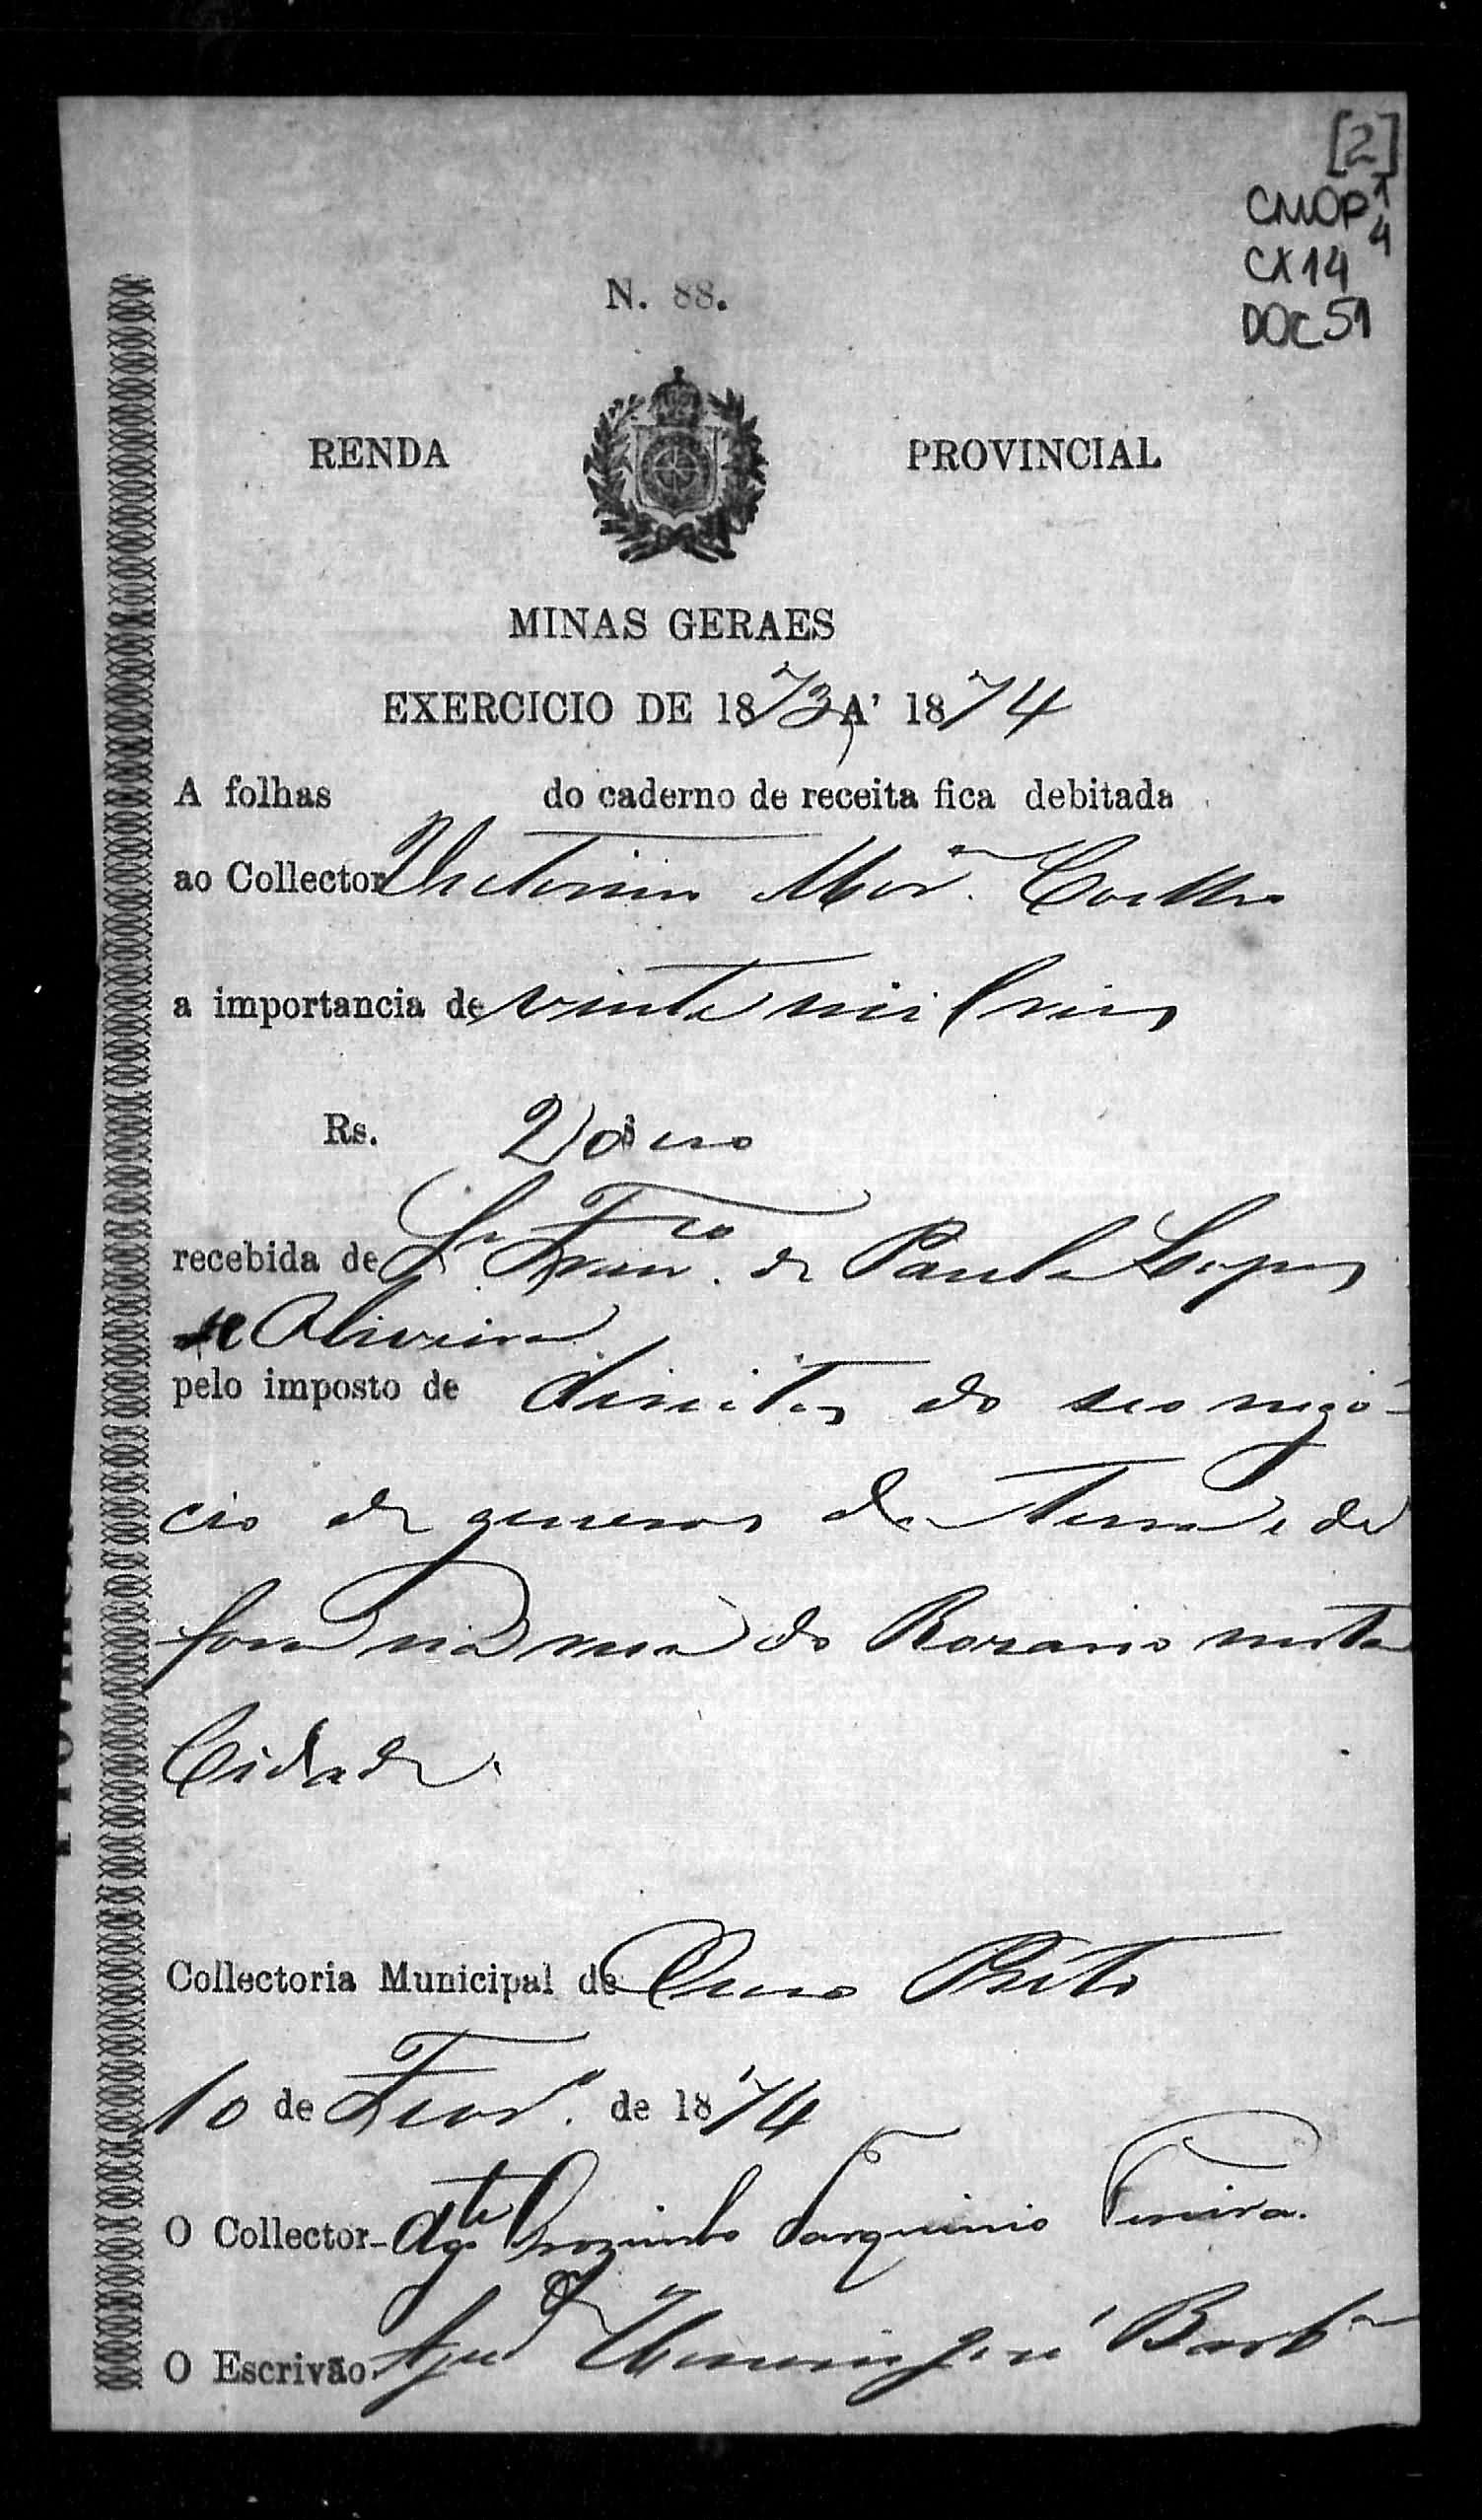 [2]
CMOP 1
4
CX 14
DOC 51
N. 88.
RENDA PROVINCIAL
MINAS GERAES
EXERCICIO DE 1873 A' 1874
A folhas do caderno de receita fica debitada
ao Collector Coelho
a importancia de vinte mil reis
Rs. 20$000
recebida de Franco. de Paula Lopes
de Oliveira
pelo imposto de direitos do seo nego-
cio de generos da terra e de
fora na rua do Rozario nesta
Cidade.
Collectoria Municipal de Ouro Preto
10 de Fevro. de 1874
O Collector Tarquinio Ferreira.
O Escrivão José Barba